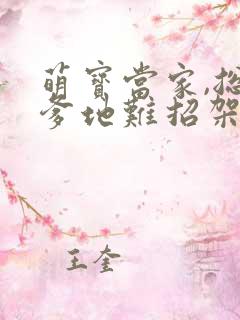 萌寶當家,總
爹地難招架
王奎